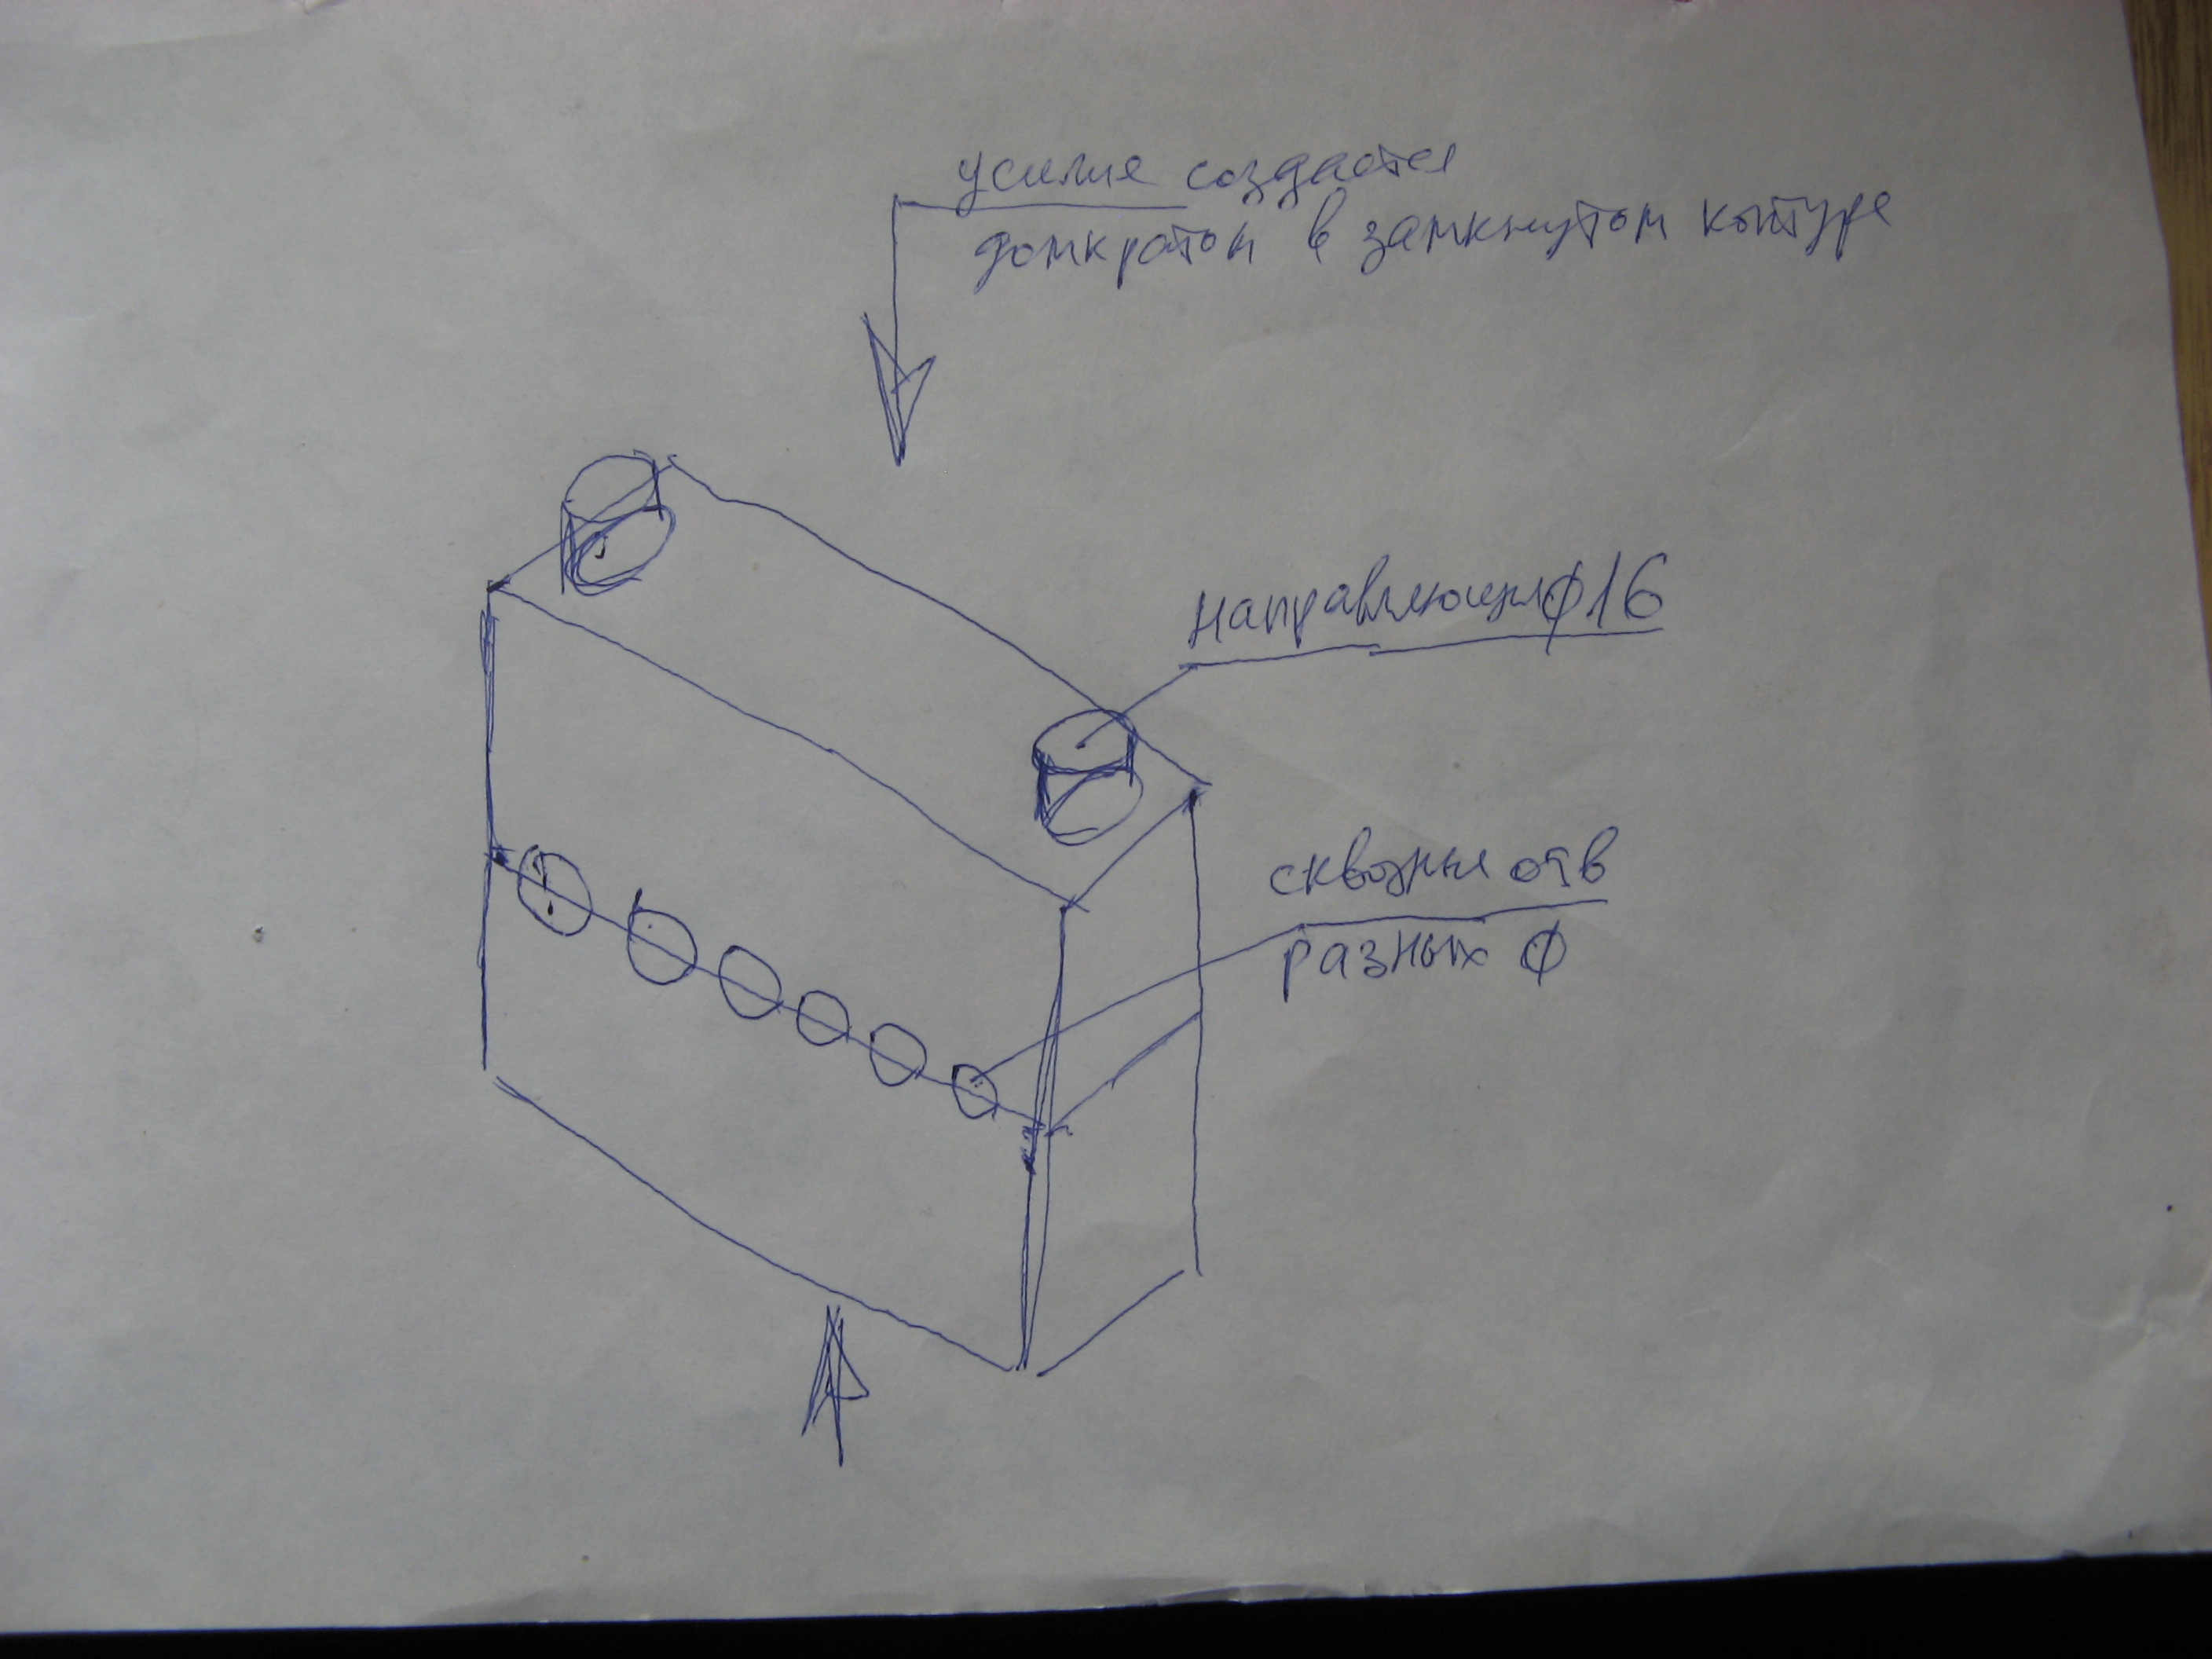 усилие создается
домкратом в замкнутом контуре
направляющие ϕ16
сквозные отв
разных ϕ